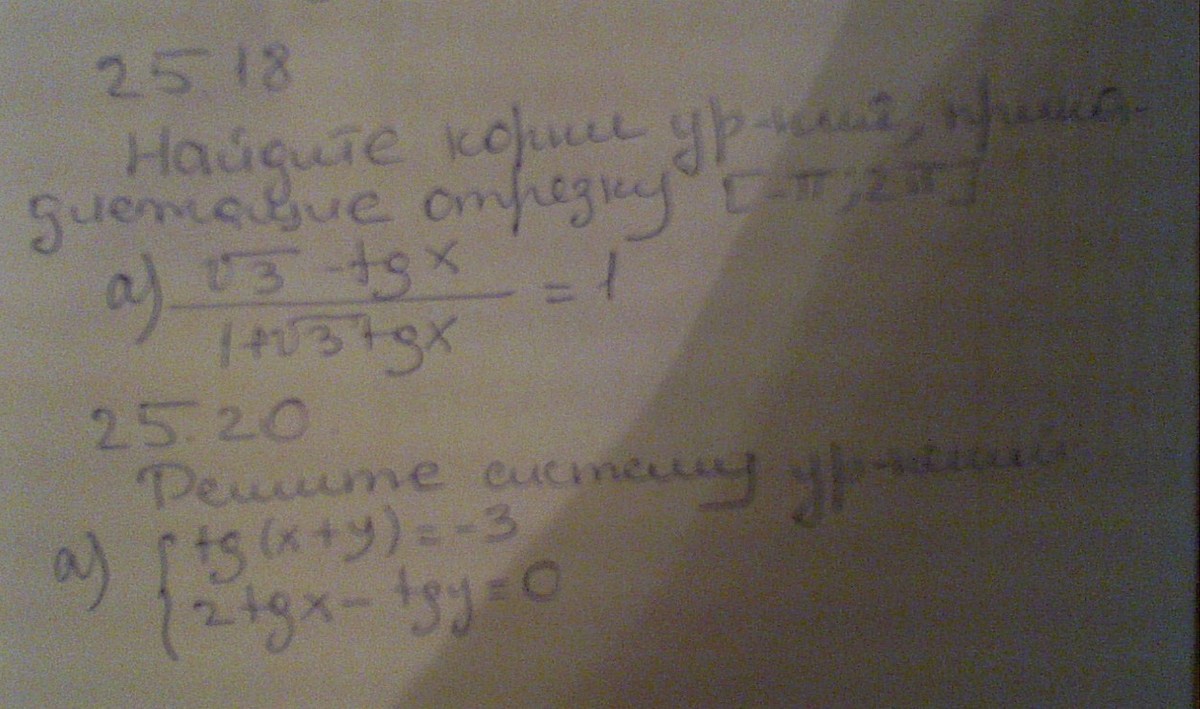 25.18
Найдите корни ур-ний, принад-
длежащие отрезку [-π; 2π]
а) √3 - tgx / 1+√3 tgx = 1
25.20
Решите систему ур-ний
а) { tg(x+y) = -3
2tgx - tgy = 0